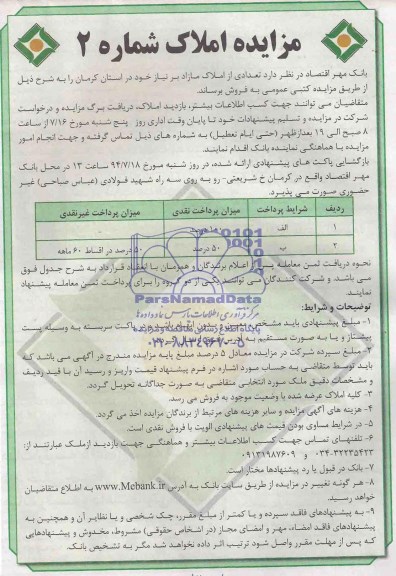 مزایده املاک شماره ۲
بانک مهر اقتصاد در نظر دارد تعدادی از املاک مازاد بر نیاز خود در استان کرمان را به شرح ذیل
از طریق مزایده کتبی عمومی به فروش برساند.
متقاضیان می توانند جهت کسب اطلاعات بیشتر، بازدید املاک، دریافت برگ مزایده و درخواست
شرکت در مزایده و تسلیم پیشنهادات خود تا پایان وقت اداری روز پنج شنبه مورخ ۷/۱۶ از ساعت
۸ صبح الی ۱۹ بعدازظهر (حتی ایام تعطیل) به شماره های ذیل تماس گرفته و جهت انجام امور
مزایده با هماهنگی نماینده بانک اقدام نمایند.
بازگشایی پاکت های پیشنهادی ارائه شده، در روز شنبه مورخ ۹۴/۷/۱۸ ساعت ۱۳ در محل بانک
مهر اقتصاد واقع در کرمان خ شریعتی- رو به روی سه راه شهید فولادی (عباس صباحی) غیر
حضوری صورت می پذیرد.
ردیف شرایط پرداخت میزان پرداخت نقدی میزان پرداخت غیرنقدی
۱ الف
۲ ب ۵۰ درصد ۵۰ درصد در اقساط ۶۰ ماهه
نحوه دریافت ثمن معامله اعلام برندگان و همزمان با انعقاد قرارداد به شرح جدول فوق
می باشد. و شرکت کنندگان می توانند یکی از دو گروه را برای پرداخت ثمن معامله پیشنهاد
نمایند.
ParsNamadData
۰۲۱-۸۸۳۴۹۶۷۰-۵
توضیحات و شرایط:
۱- مبلغ پیشنهادی باید پاکت سربسته به وسیله پست
پیشتاز و یا به صورت مستقیم به آدرس
۲- مبلغ سپرده شرکت در مزایده معادل ۵ درصد مبلغ پایه مزایده مندرج در آگهی می باشد که
باید توسط متقاضی به حساب مورد اشاره در فرم پیشنهاد قیمت واریز و رسید آن با قید ردیف
و مشخصات دقیق ملک مورد انتخابی متقاضی به صورت جداگانه تحویل گردد.
۳- کلیه املاک عرضه شده با وضعیت موجود به فروش می رسد.
۴- هزینه های آگهی مزایده و سایر هزینه های مرتبط از برندگان مزایده اخذ می گردد.
۵- در شرایط مساوی بودن قیمت های پیشنهادی الویت با فروش نقدی است.
۶- تلفنهای تماس جهت کسب اطلاعات بیشتر و هماهنگی جهت بازدید ازملک عبارتند از:
۰۳۴-۳۲۲۳۵۴۲۳ و ۰۹۱۳۱۹۸۷۶۰۹
۷- بانک در قبول یا رد پیشنهادها مختار است.
۸- هر گونه تغییر در مزایده از طریق سایت بانک به آدرس www.Mebank.ir به اطلاع متقاضیان
خواهد رسید.
۹- به پیشنهادهای فاقد سپرده و یا کمتر از مبلغ مقرر، چک شخصی و یا نظایر آن و همچنین به
پیشنهادهای فاقد امضاء، مهر و امضای مجاز (در اشخاص حقوقی) مشروط، مخدوش و پیشنهادهایی
که پس از مهلت مقرر واصل شود ترتیب اثر داده نخواهد شد مگر به تشخیص بانک.